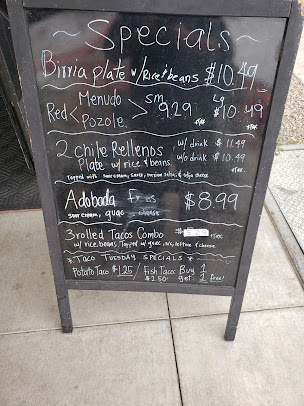 ~ Specials ~
Birria plate w/ Rice & beans $10.49
Red < Menudo Pozole > sm 9.29 Lg $10.49
+tax +tax
2 Chile Rellenos w/ drink $ 11.49
Plate w/ rice & beans w/o drink $ 10.49
Topped with sour cream,
Adobada Fries $8.99
sour cream, guac cheese
3 rolled Tacos Combo
w/ rice, beans, Topped w/ guac, s/c, lettuce & cheese
* Taco Tuesday Specials *
Potato Taco $1.25 / Fish Taco Buy 1
$2.50 get 1 free!